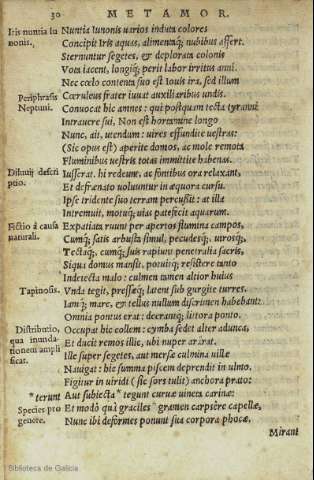 30 METAMOR.
Iris nuntia Iu Nuntia Iunonis uarios induta colores
nonis. Concipit Iris aquas, alimentaq; nubibus affert.
Sternuntur segetes, & deplorata colonis
Vota iacent, longiq; perit labor irritus anni.
Nec cœlo contenta suo est Iouis ira, sed illum
Periphrasis Cæruleus frater iuuat auxiliaribus undis.
Neptuni. Conuocat hic amnes: qui postquam tecta tyranni
Intrauere sui, Non est hortamine longo
Nunc, ait, utendum: uires effundite uestras:
(Sic opus est) aperite domos, ac mole remota
Fluminibus uestris totas immittite habenas.
Diluuij descri Iusserat. hi redeunt, ac fontibus ora relaxant,
ptio. Et defrænato voluuntur in æquora cursu.
Ipse tridente suo terram percußit: at illa
Intremuit, motuq; uias patefecit aquarum.
Fictio à causa Expatiata ruunt per apertos flumina campos,
naturali. Cumq; satis arbusta simul, pecudesq;, uirosq;,
Tectaq;, cumq; suis rapiunt penetralia sacris,
Siqua domus mansit, potuitq; resistere tanto
Indeiecta malo: culmen tamen altior huius
Tapinosis. Vnda tegit, preßæq; latent sub gurgite turres.
Iamq; mare, & tellus nullum discrimen habebant:
Omnia pontus erat: deerantq; littora ponto.
Distributio, Occupat hic collem: cymba sedet alter adunca,
qua inunda- Et ducit remos illic, ubi nuper arârat.
tionem ampli Ille super segetes, aut mersæ culmina uillæ
ficat. Nauigat: hic summa piscem deprendit in ulmo.
Figitur in uiridi (sic fors tulit) anchora prato:
*terunt Aut subiecta * tegunt curuæ uineta carinæ:
Species pro Et modò quà graciles gramen carpsêre capellæ,
genere. Nunc ibi deformes ponunt sua corpora phocæ,
Mirant
Biblioteca de Galicia